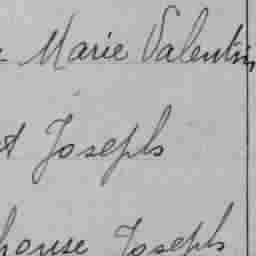 Marie Valentin
t Joseph
house Joseph